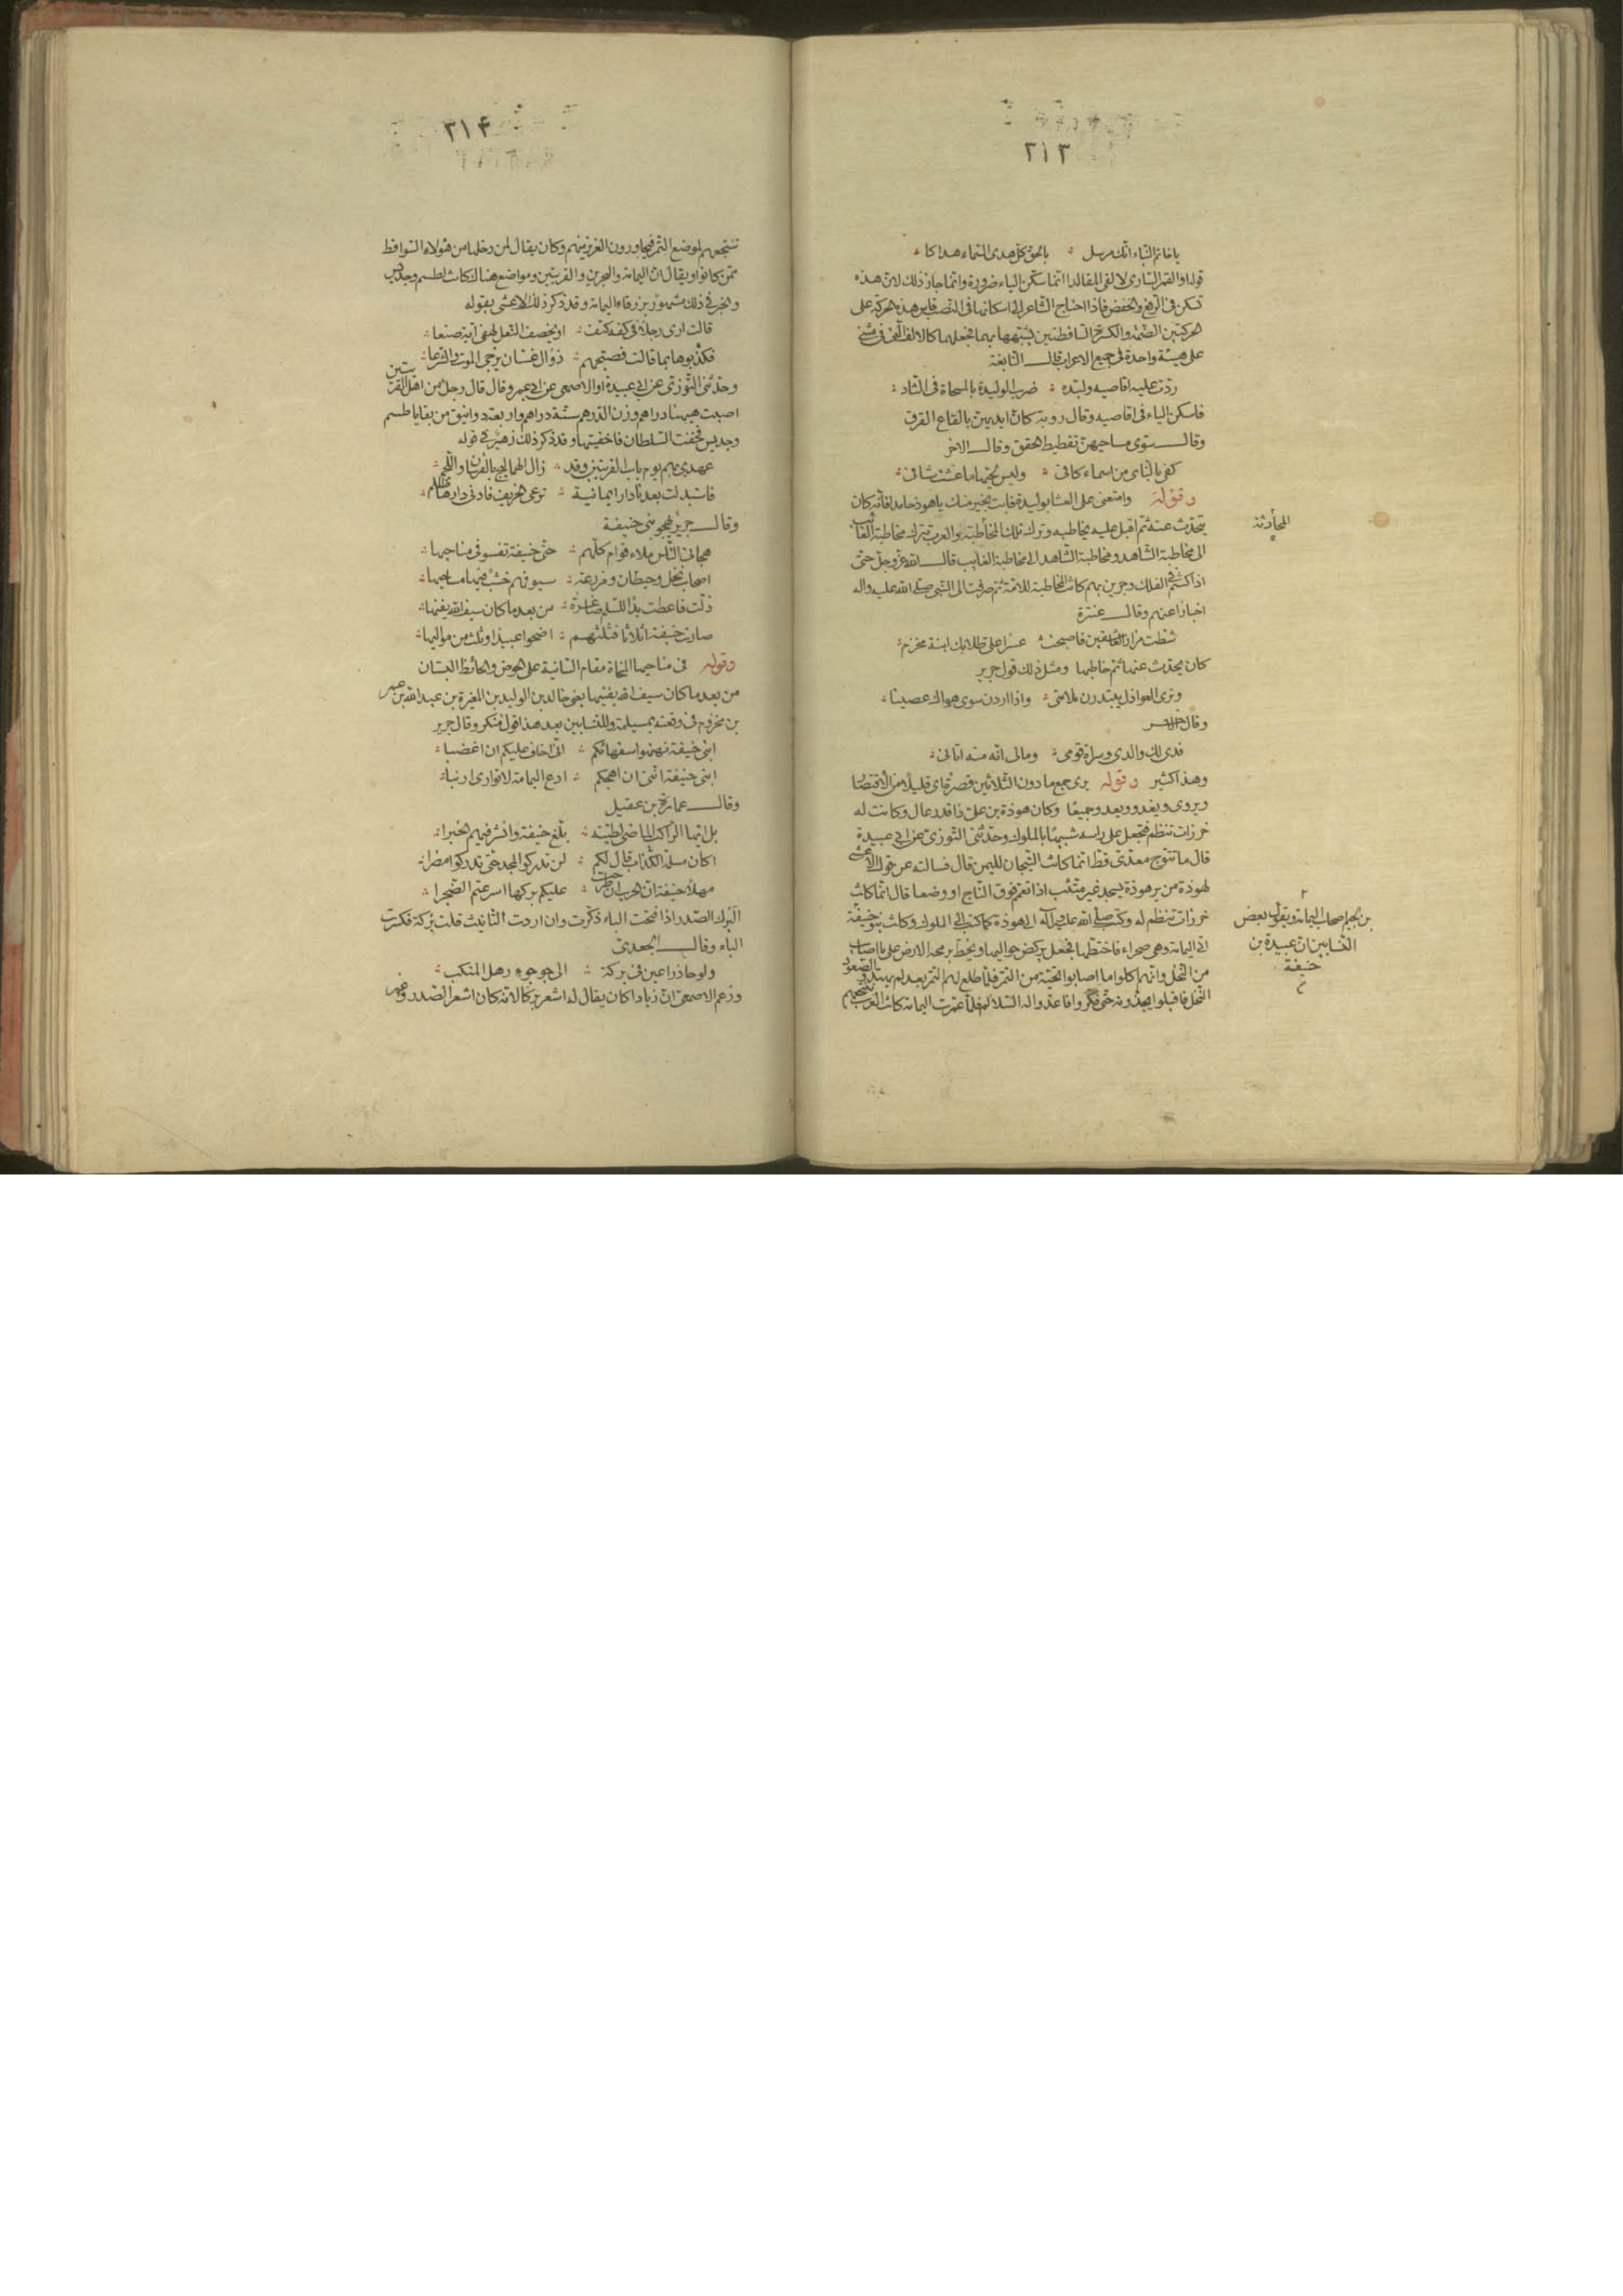 ٣١٣
يا خاتم النباء انك مرسل ؞ بالحق كل هدى السماء هداكا ؞
قوله او القمر السارى لالقى المقالدا انما سكن الياء ضرورة وانما جاز ذلك لان هذه
تسكن فى الرفع والخفض فاذا احتاج الشاعر الى اسكانها فى النصب قاس هذه الحركة على
الحركتين الضمة والكسرة الساقطتين فشبهها بهما فجعلها كالالف التى فى مثنى
على هيئة واحدة فى جميع الاعراب قال النابغة
ردت عليه اقاصيه ولبّده ؞ ضرب الوليدة بالمسحاة فى الثاد ؞
فاسكن الياء فى اقاصيه وقال روبة كان ايديهن بالقاع القرق
وقال سوى مساحيهن تقطيط الحقق وقال الاخر
كفى بالناى من اسماء كافى ؞ وليس لحبها ما عشت شافى ؞
وقوله وامتعنى على العشا بوليدة فابت بخير منك يا هوذ حامدا فانه كان
يتحدث عنه ثم اقبل عليه يخاطبه وترك تلك المخاطبة والعرب تترك مخاطبة الغائب
المحادثة
الى مخاطبة الشاهد ومخاطبة الشاهد الى مخاطبة الغايب قال الله عز وجل حتى
اذا كنتم فى الفلك وجرين بهم كانت المخاطبة للامة ثم صرفت الى النبى صلى الله عليه واله
اخبارا عنهم وقال عنترة
شطت مزار العاشقين فاصبحت ؞ عسرا على طلابك ابنة مخزم ؞
كان يحدث عنها ثم خاطبها ومثل ذلك قول جرير
وترى العواذل يبتدرن ملامتى ؞ واذا اردن سوى هواك عصينا ؞
وقال الاخر
فدى لك والدى وسراة قومى ؞ ومالى انه منه اتانى ؞
وهذا كثير وقوله يرى جمع ما دون الثلاثين قصرة اى قليلا من الاقتصار
ويروى ويغدو ويعدو جميعا وكان هوذة بن على ذا قدر عال وكانت له
خرزات تنظم فتجعل على راسه تشبها بالملوك وحدثنى التوزى عن ابى عبيدة
قال ما تتوج معدى قط انما كانت التيجان لليمن قال فسالته عن قول الاعشى
لهوذة من ير هوذة يسجد غير متئب اذا تعمم فوق التاج او وضعا قال انما كانت
خرزات تنظم له وكتب صلى الله عليه وآله الى هوذة كما كتب الى الملوك وكانت بنو حنيفة
بن لجيم اصحاب اليمامة ويقول بعض
النسابين ان عبيدة بن
حنيفة
اتى اليمامة وهى صحراء فاختطها فجعل يركض حواليها ويخط برمحه الارض على ما اصاب
من النخل وانهم كلوا ما اصابوا تحته من التمر فلما طلع لهم التمر بعد لم يهتدوا لصعود
النخل فاقبلوا يجذونه حتى فكروا فاعدوا له السلاليم فلما عمرت اليمامة كانت العرب تنتجعهم
٣١۴
تنتجعهم لموضع التمر فيجاورون العزيز منهم وكان يقال لمن دخلها من هؤلاء السواقط
ممن كانوا ويقال ان اليمامة والبحرين والقريتين ومواضع هنالك كانت لطسم وجديس
والخبر فى ذلك مشهور بزرقاء اليمامة وقد ذكر ذلك الاعشى بقوله
قالت ارى رجلا فى كفه كتف ؞ او يخصف النعل لهفى اية صنعا ؞
فكذبوها بما قالت فصبحهم ؞ ذو ال غسان يزجى الموت والشرعا ؞
وحدثنى التوزى عن ابى عبيدة او الاصمعى عن ابى عمرو قال قال رجل من اهل القريتين
اصبت ههنا دراهم وزن الدرهم ستة دراهم واربعة دوانيق من بقايا طسم
وجديس فخفت السلطان فاخفيتها وقد ذكر ذلك زهير فى قوله
عهدى بهم يوم باب القريتين وقد ؞ زال الهماليج بالفرسان واللجم ؞
فاستبدلت بعدنا دارا يمانية ؞ ترعى الخريف فادنى دارها ظلم ؞
وقال جرير يهجو بنى حنيفة
هجانى الناس ملاء قوام كلهم ؞ حتى حنيفة تفسو فى مناحيها ؞
اصحاب نخل وحيطان ومزرعة ؞ سيوفهم خشب فيها مساحيها ؞
ذلت فاعطت يدا للسلم صاغرة ؞ من بعد ما كان سيف الله يفنيها ؞
صارت حنيفة اثلاثا فثلثهم ؞ اضحوا عبيدا وثلث من مواليها ؞
وقوله فى مناحيها المنحاة مقام السانية على الحوض والحائط البستان
من بعد ما كان سيف الله يفنيها يعنى خالد بن الوليد بن المغيرة بن عبد الله بن عمر
بن مخزوم فى وقعته بمسيلمة وللنسابين بعد هذا قول منكر وقال جرير
ابنى حنيفة نهنهوا سفهائكم ؞ انى اخاف عليكم ان اغضبا ؞
ابنى حنيفة اننى ان اهجكم ؞ ادع اليمامة لا توارى ارنبا ؞
وقال عمارة بن عقيل
بل ايها الراكب الماضى لطيته ؞ بلغ حنيفة وانشر فيهم الخبرا ؞
اكان مسلمة الكذاب قال لكم ؞ لن تدركوا المجد حتى تدركوا مضرا ؞
مهلا حنيفة ان الحرب ان طرحت ؞ عليكم بركها اسرعتم الضجرا ؞
البرك الصدر اذا فتحت الباء ذكرت وان اردت التانيث قلت بركة فكسرت
الباء وقال الجعدى
ولوحا ذراعين فى بركة ؞ الى جوجوء رهل المنكب ؞
وزعم الاصمعى ان زيادا كان يقال له اشعر بركا لانه كان اشعر الصدر وغير